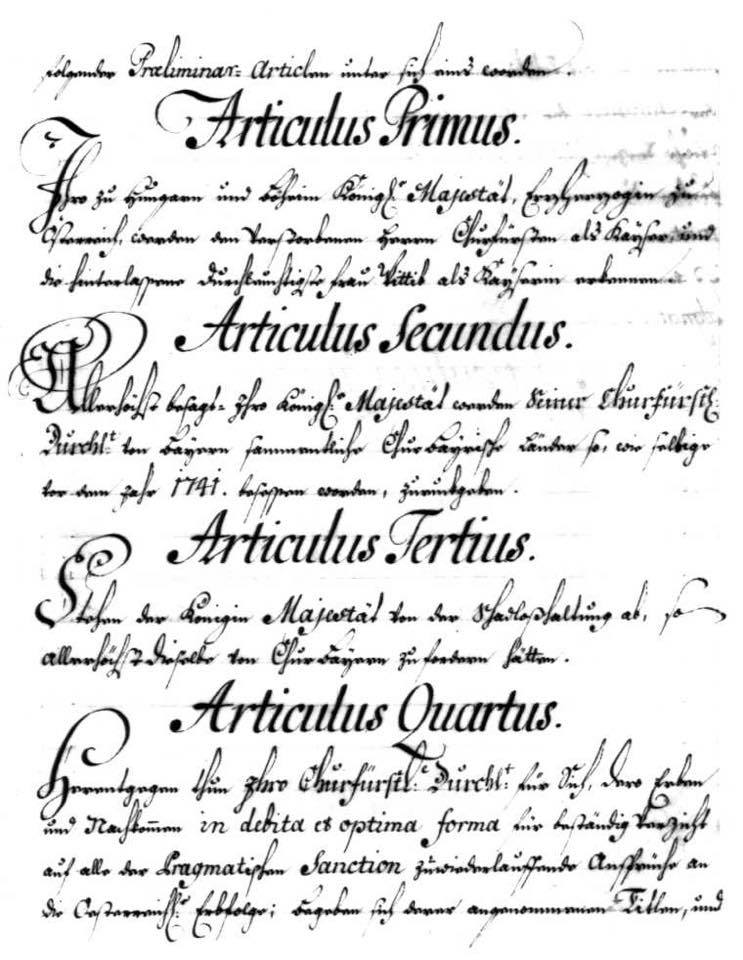 folgender Præliminar= Articlen unter sich eins worden.
Articulus Primus.
Ihro zu Hungarn und Böheim Königl. Majestät, Erzherzogin zu
Österreich, werden den verstorbenen Herrn Churfürsten als Kayser, und
die hinterlassene durchleuchtigste Frau Wittib als Kayserin erkennen.
Articulus Secundus.
Allerhöchst besagt= Ihro Königl. Majestät werden Seiner Churfürstl.
Durchlt. von Bayern sammentliche ChurBayrische Länder so, wie selbige
vor dem Jahr 1741. besessen worden, zuruckgeben.
Articulus Tertius.
Stehen der Königin Majestät von der Schadloßhaltung ab, so
allerhöchst dieselbe von ChurBayern zu fordern hätten.
Articulus Quartus.
Herentgegen thun Ihro Churfürstl. Durchlt. für Sich, dero Erben
und Nachkommen in debita et optima forma für beständig Verzicht
auf alle der Pragmatischen Sanction zuwiederlauffende Ansprüche an
die Oesterreichl. Erbfolge; begeben sich derer angenommenen Titlen, und